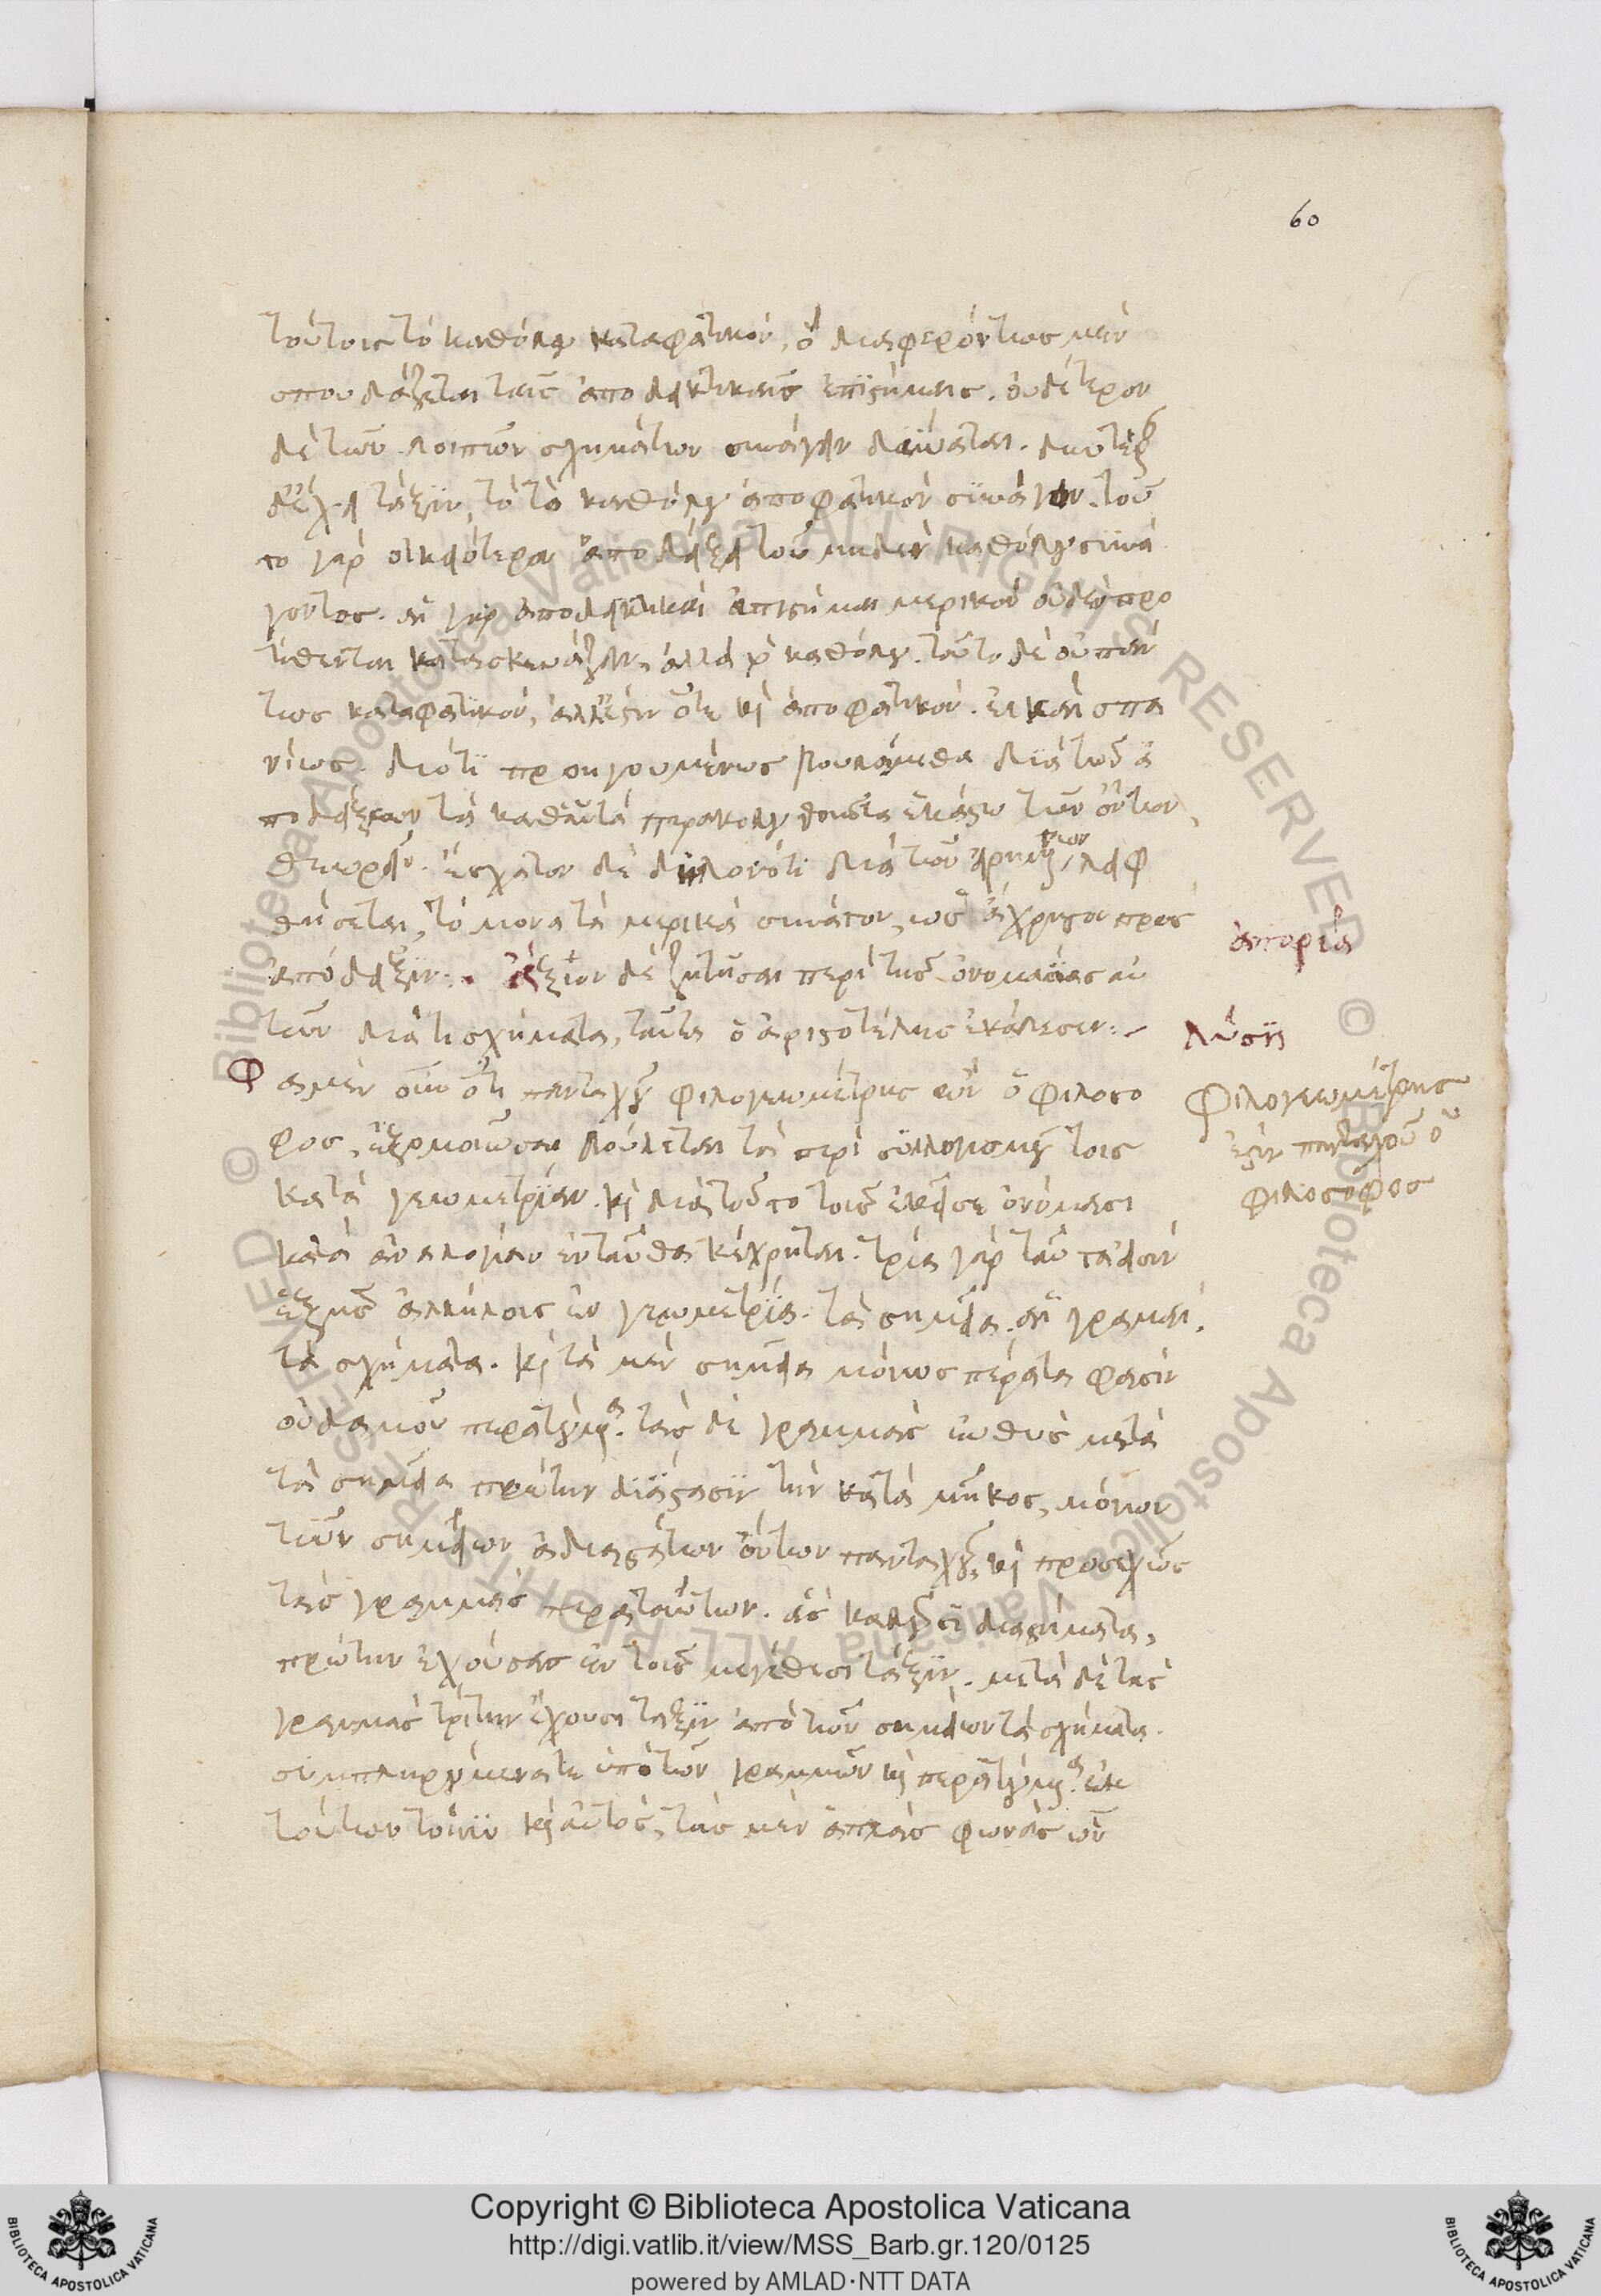 60
τούτοις τὸ καθόλου καταφατικόν, ὃ διαφερόντως μὲν
σπουδάζεται ταῖς ἀποδεικτικαῖς ἐπιστήμαις. οὐδέτερον
δὲ τῶν λοιπῶν σχημάτων συνάγειν δύναται. δευτέραν
δ' ἔχει τάξιν, τὸ τὸ καθόλου ἀποφατικὸν συνάγον. τοῦ
το γὰρ οἰκειότερον ἀποδείξει τοῦ μηδὲν καθόλου συνά
γοντος. αἱ γὰρ ἀποδεικτικαὶ ἐπιστῆμαι μερικὸν οὐδὲν προ
τίθενται κατασκευάζειν, ἀλλὰ καθόλου. τοῦτο δὲ οὐ πάν
τως καταφατικόν, ἀλλ' ἔστιν ὅτε καὶ ἀποφατικόν. εἰ καὶ σπα
νίως. διότι προηγουμένως βουλόμεθα διὰ τῶν ἀ
ποδείξεων τὰ καθ' αὑτὰ παρακολουθοῦντα ἑκάστω τῶν ὄντων,
θεωρεῖν. ἔσχατον δὲ δηλονότι διὰ τῶν εἰρημένων λειφ
θήσεται, τὸ μόνα τὰ μερικὰ συνάγον, ὡς ἄχρηστον πρὸς
ἀπόδειξιν:. ἄξιον δὲ ζητῆσαι περὶ τῆς ὀνομασίας αὐ
τῶν διὰ τί σχήματα, ταῦτα ὁ ἀριστοτέλης ἐκάλεσεν:
ἀπορία
λύσις
Φαμὲν οὖν ὅτι πανταχοῦ φιλογεωμέτρης ὢν ὁ φιλόσο
φος, ἐξομοιῶσαι βούλεται τὰ περὶ συλλογισμοῦ τοῖς
κατὰ γεωμετρίαν. καὶ διὰ τοῦτο τοῖς ἐκεῖσε ὀνόμασι
κατὰ ἀναλογίαν ἐνταῦθα κέχρηται. τρία γὰρ ταῦτα εἰσὶν
ἑξῆς ἀλλήλοις ἐν γεωμετρία. τὰ σημεῖα. αἱ γραμμαί.
τὰ σχήματα. καὶ τὰ μὲν σημεῖα μόνως πέρατα φασὶν
οὐδαμοῦ περατούμενα. τὰς δὲ γραμμὰς εὐθὺς μετὰ
τὰ σημεῖα πρώτην διάστασιν τὴν κατὰ μῆκος, μόνον
τῶν σημείων ἀδιαστάτων ὄντων πανταχοῦ, καὶ προσεχῶς
τὰς γραμμὰς περατούντων. ἃς καλοῦσι διαστήματα,
πρώτην ἐχούσας ἐν τοῖς μεγέθεσι τάξιν. μετὰ δὲ τὰς
γραμμὰς τρίτην ἔχουσι τάξιν ἀπὸ τῶν σημείων τὰ σχήματα.
συμπληρούμενά τε ὑπὸ τῶν γραμμῶν καὶ περατούμενα. ἐκ
τούτων τοίνυν καὶ αὐτὸς, τὰς μὲν ἁπλᾶς φωνὰς ὧν
Φιλογεωμέτρης
ἐστὶν πανταχοῦ ὁ
φιλόσοφος
© Biblioteca Apostolica Vaticana ALL RIGHTS RESERVED © Biblioteca Apostolica Vaticana ALL RIGHTS RESERVED
BIBLIOTECA APOSTOLICA VATICANA
Copyright © Biblioteca Apostolica Vaticana
http://digi.vatlib.it/view/MSS_Barb.gr.120/0125
powered by AMLAD·NTT DATA
BIBLIOTECA APOSTOLICA VATICANA